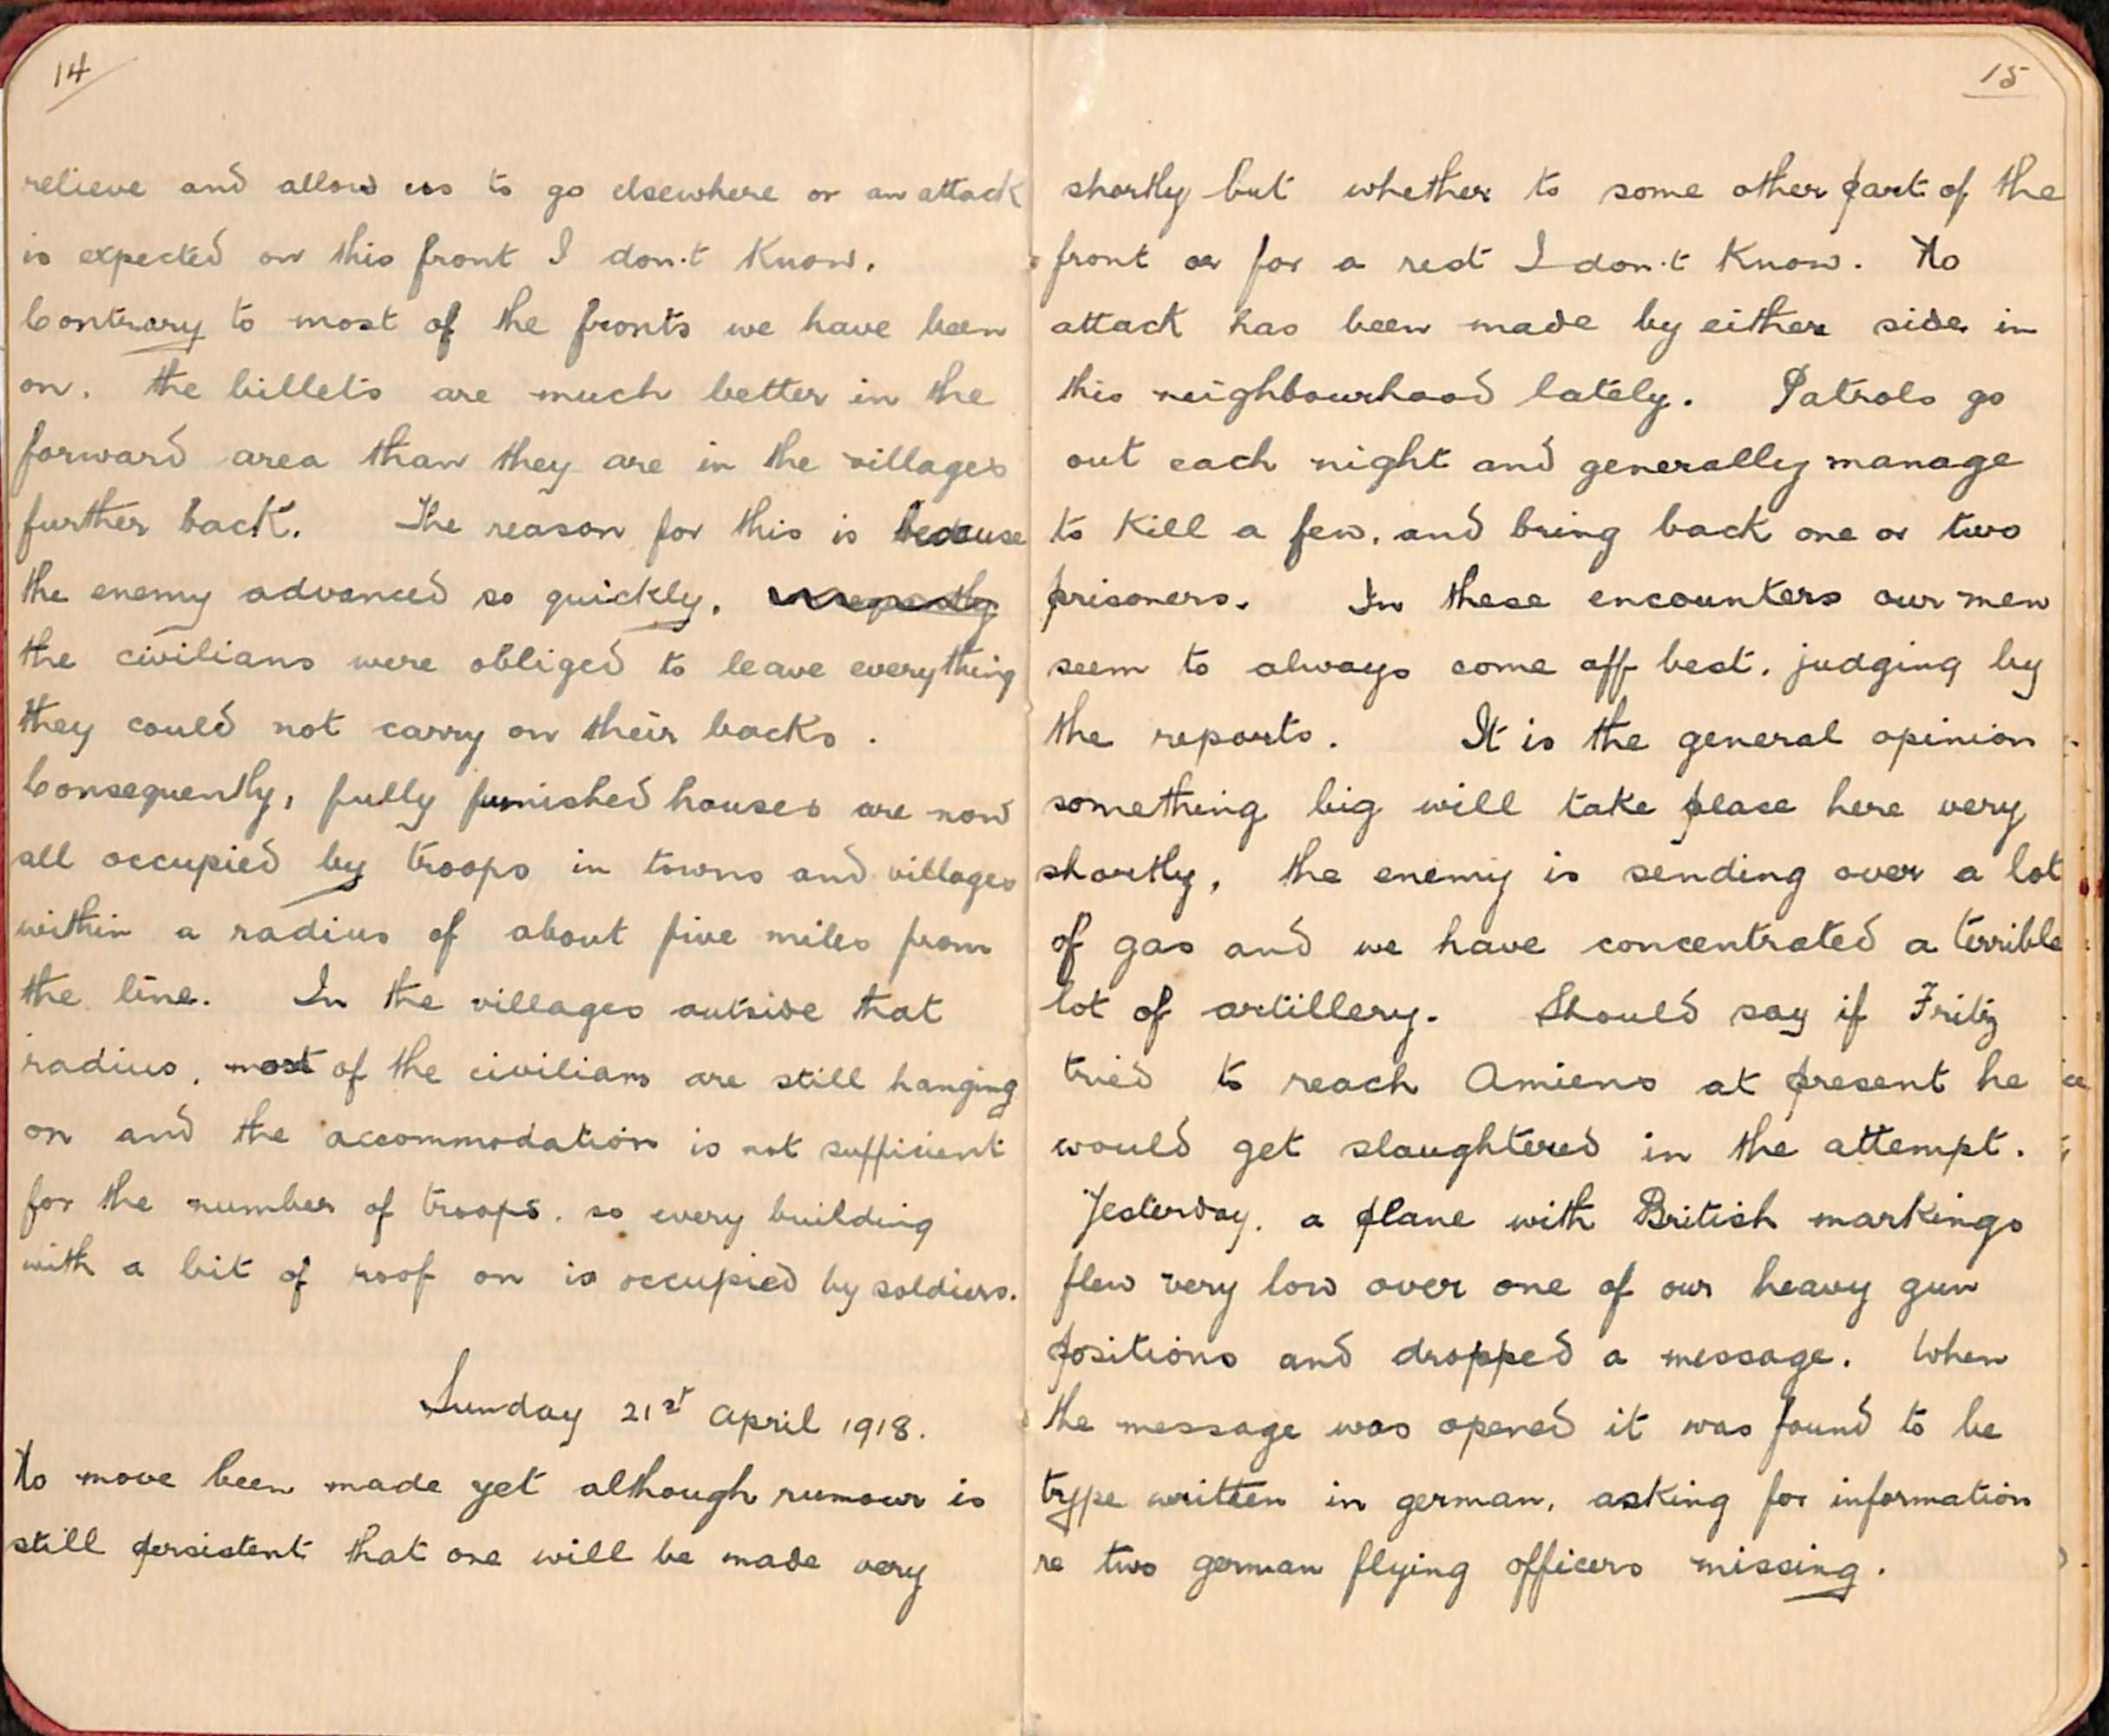 14
relieve and allow us to go elsewhere or an attack
is expected on this front I don't know.
Contrary to most of the fronts we have been
on. the billets are much better in the
forward area than they are in the villages
further back. The reason for this is because
the enemy advanced so quickly,
the civilians were obliged to leave everything
they could not carry on their backs.
Consequently, fully furnished houses are now
all occupied by troops in towns and villages
within a radius of about five miles from
the line. In the villages outside that
radius, most of the civilians are still hanging
on and the accommodation is not sufficient
for the number of troops. so every building
with a bit of roof on is occupied by soldiers.
Sunday 21st April 1918.
No move been made yet although rumour is
still persistent that one will be made very
15
shortly but whether to some other part of the
front or for a rest I don't know. No
attack has been made by either side in
this neighbourhood lately. Patrols go
out each night and generally manage
to kill a few, and bring back one or two
prisoners. In these encounters our men
seem to always come off best, judging by
the reports. It is the general opinion
something big will take place here very
shortly, the enemy is sending over a lot
of gas and we have concentrated a terrible
lot of artillery. Should say if Fritz
tried to reach Amiens at present he
would get slaughtered in the attempt.
Yesterday, a plane with British markings
flew very low over one of our heavy gun
positions and dropped a message. When
the message was opened it was found to be
type written in german, asking for information
re two german flying officers missing.